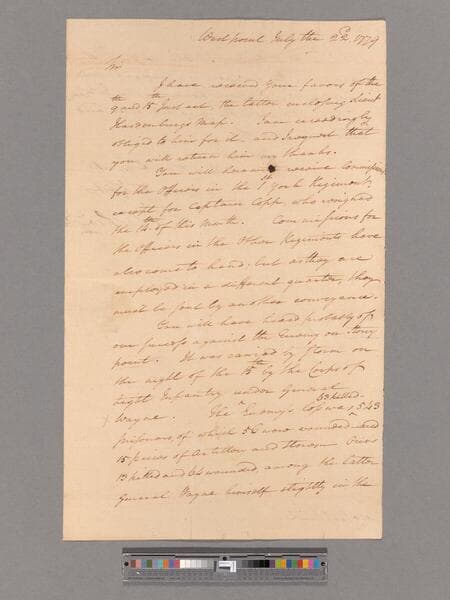 West point July the 22d 1779
Sir
I have received your favors of the
9th and 15th Instant, the latter enclosing Lieut
Hardenburgs Map. I am exceedingly
obliged to him for it, and I request that
you will return him my thanks.
You will herewith receive Commissions
for the Officers in the 1st York Regiment,
except for Captain Copp, who resigned
the 14th of this Month. Commissions for
the Officers in the other Regiments have
also come to hand, but as they are
employed in a different quarter, they
must be sent by another conveyance.
You will have heard probably of
our success against the Enemy on Stony
point. It was carried by storm on
the night of the 15th by the Corps of
Light Infantry under General
Wayne. The Enemy's loss was 63 killed 543
prisoners, of which 56 were wounded and
15 pieces of Artillery and Stores. Ours
13 killed and 64 wounded, among the latter
General Wayne himself slightly in the